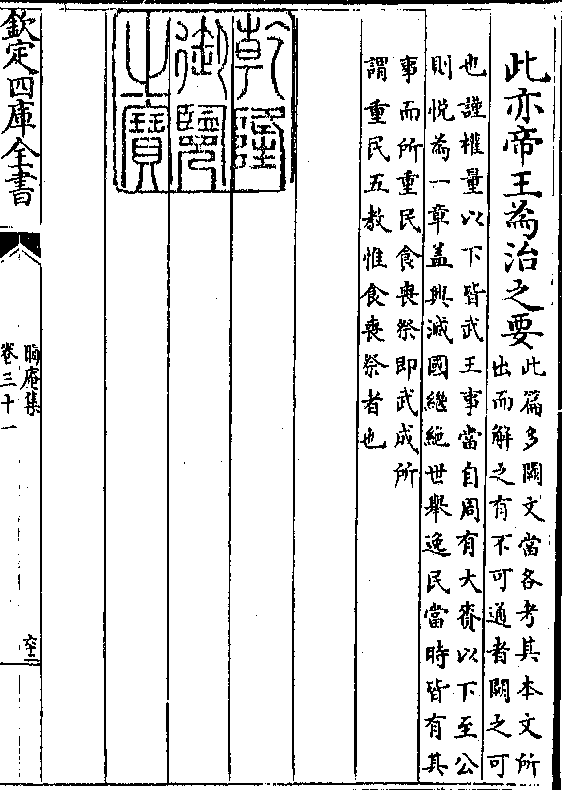 此亦帝王為治之要
此篇多闕文當各考其本文所
出而解之有不可通者闕之可
也謹權量以下皆武王事當自周有大賚以下至公
則悅為一章蓋興滅國繼絶世舉逸民當時皆有其
事而所重民食喪祭即武成所
謂重民五教惟食喪祭者也
乾隆
御覽
之寶
欽定四庫全書
晦庵集
卷三十一